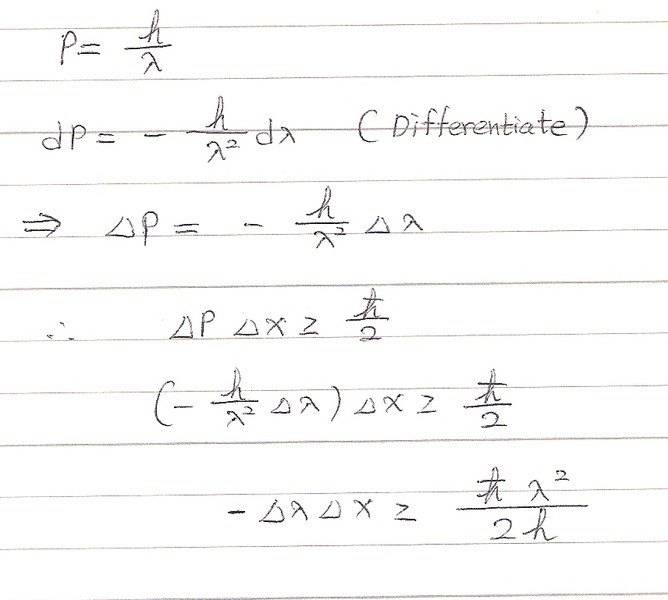 P = h/λ
dP = - h/λ² dλ (Differentiate)
⇒ ΔP = - h/λ² Δλ
∴ ΔP Δx ≥ ħ/2
(- h/λ² Δλ) Δx ≥ ħ/2
- Δλ Δx ≥ ħ λ²/2h